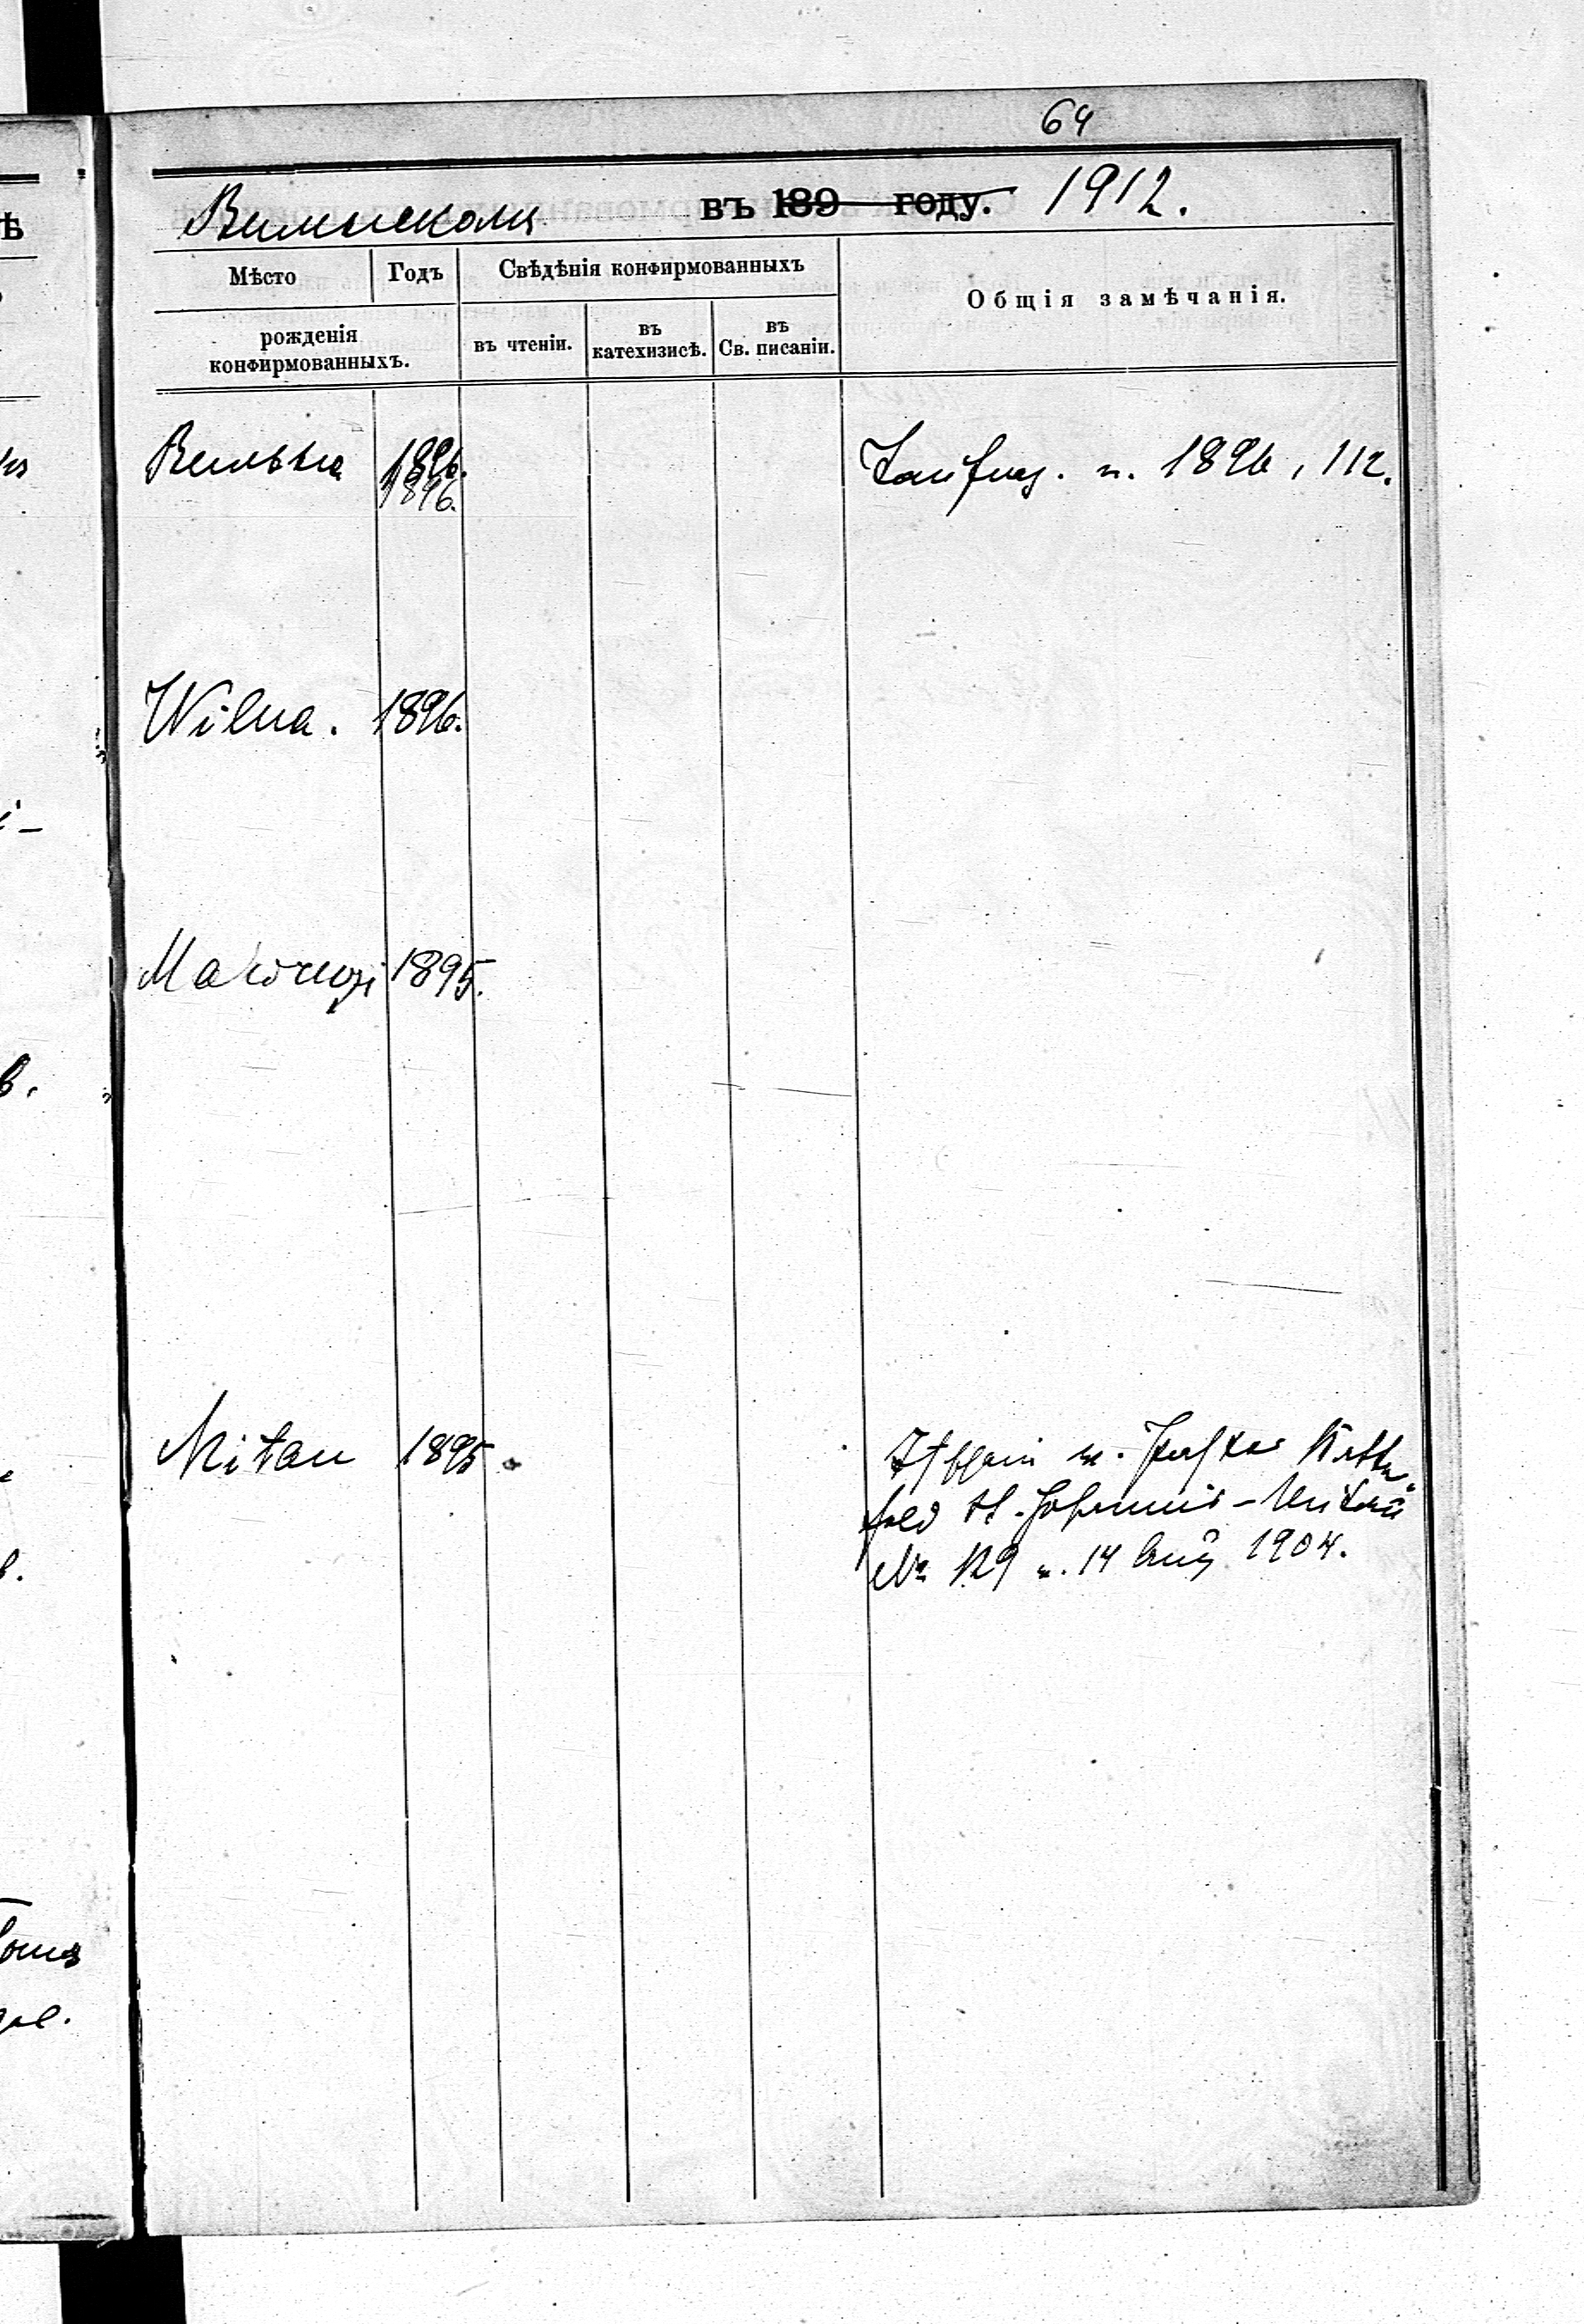 64
Виленскомъ въ 189 году. 1912.
Мѣсто Годъ Свѣдѣнія конфирмованныхъ Общія замѣчанія.
рожденія конфирмованныхъ. въ чтеніи. въ катехизисѣ. въ Св. писаніи.
Вильна 1896. 1896. Taufreg. v. 1896, 112.
Wilna. 1896.
1895.
Mitau 1895. v. Pastor
feld St. Johannis-Mitau
№ 129 v. 14 Aug 1904.